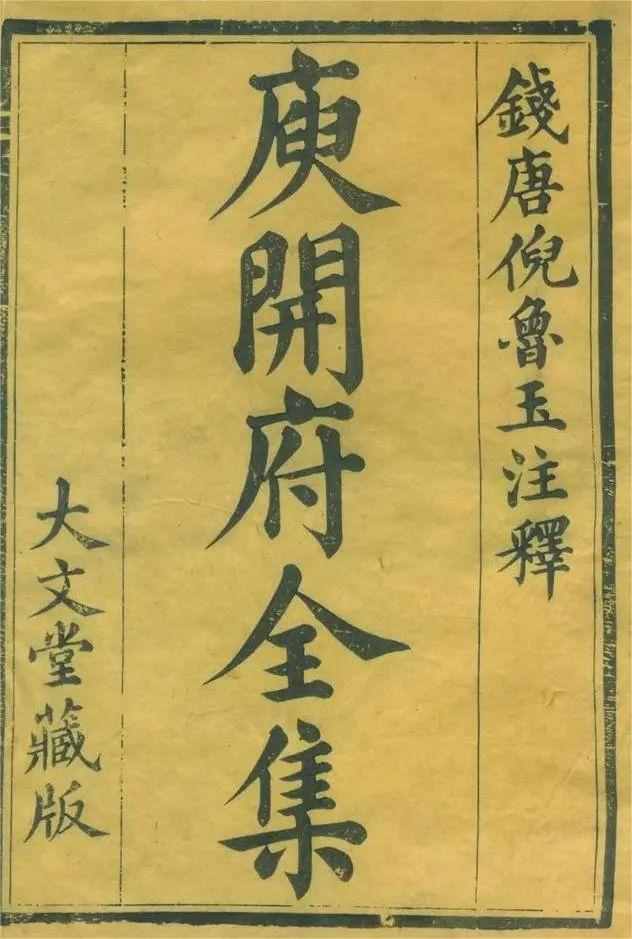 錢唐倪魯玉注釋
庾開府全集
大文堂藏版